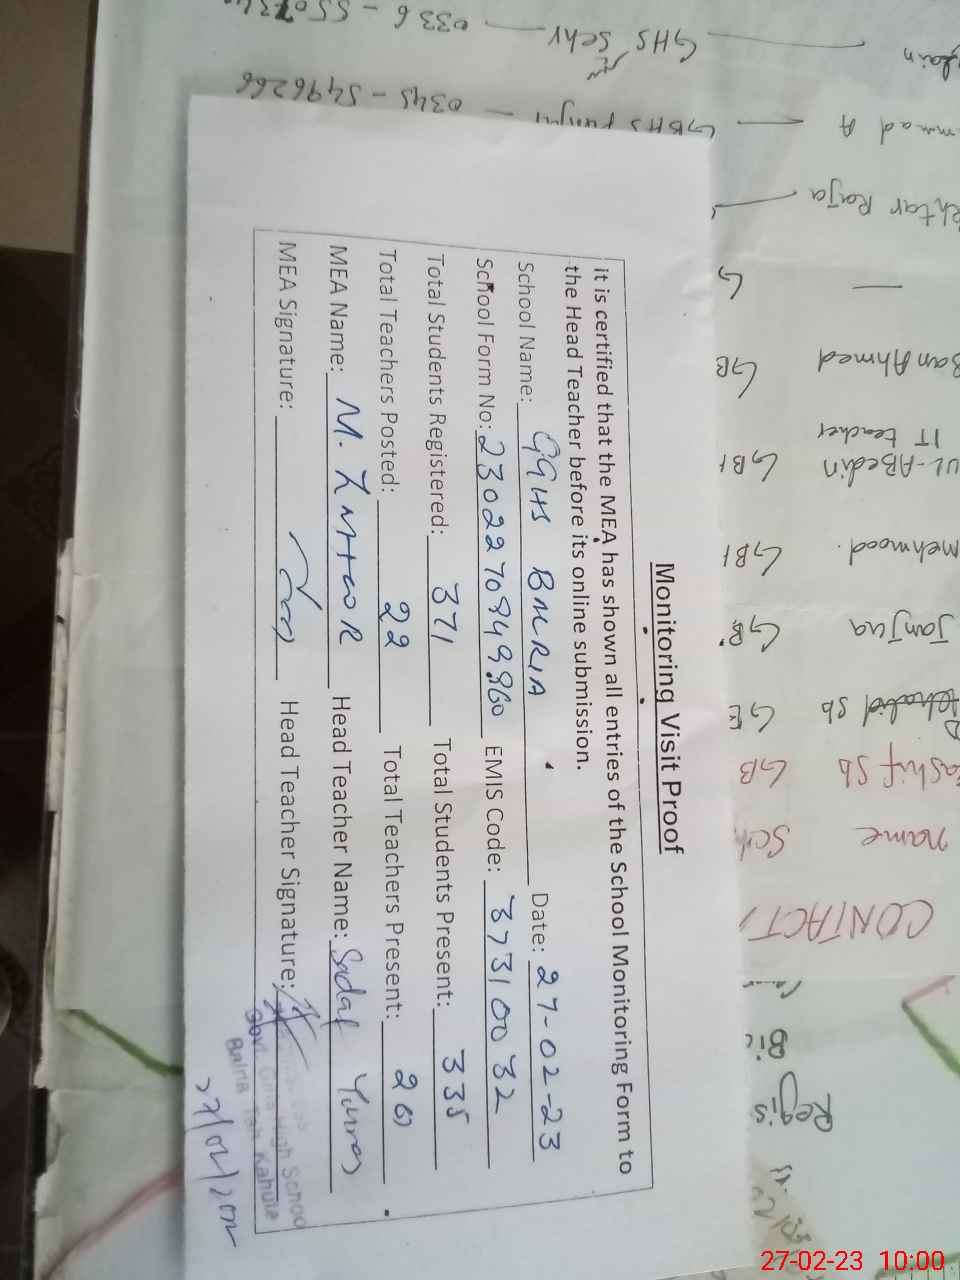 Monitoring Visit Proof
it is certified that the MEA has shown all entries of the School Monitoring Form to
the Head Teacher before its online submission.
School Name: GGHS BMRIA Date: 27-02-23
School Form No: 2302270949960 EMIS Code: 37310032
Total Students Registered: 371 Total Students Present: 335
Total Teachers Posted: 22 Total Teachers Present: 20
MEA Name: M. ZMHOOR Head Teacher Name: Sadaf Yunas
MEA Signature: Head Teacher Signature:
Govt Girls High School
Bairia Teh Kahuta
27/02/202
Regis
CONTACT
name Sch
ashif sb GB
sb
Janjua GB
mehmood. GBH
UL-ABedin GBH
IT teacher
Ban Ahmed GB
htar Raja
mmad A — GBHS — 0345-5496266
GHS Sehr — 0336-
27-02-23 10:00